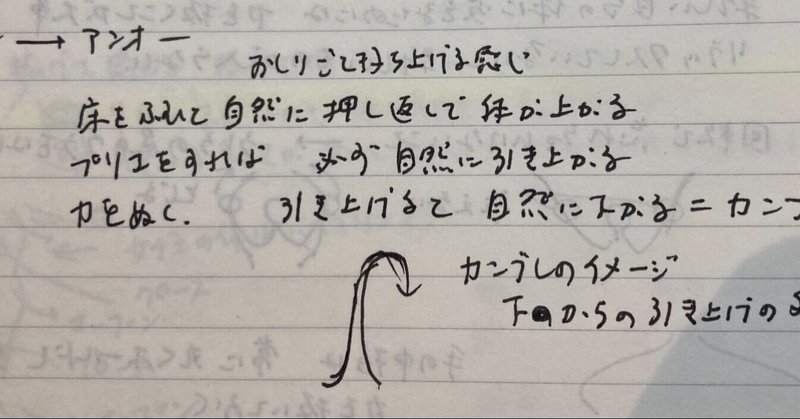 → アンオー
おしりごと持ち上げる感じ
床をふんで 自然に 押し返して 体が上がる
プリエをすれば 必ず 自然に引き上がる
力をぬく. 引き上げると 自然に下がる = カンブ
カンブレのイメージ
下からの引き上げの